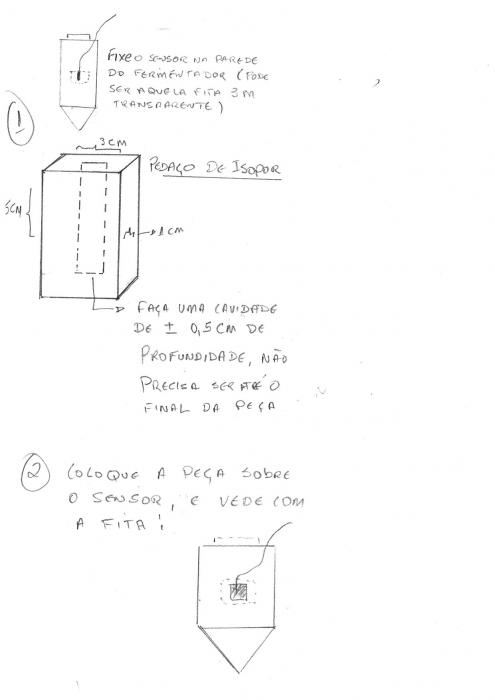 FIXE O SENSOR NA PAREDE
DO FERMENTADOR (PODE
SER AQUELA FITA 3M
TRANSPARENTE)
1
3CM
PEDAÇO DE ISOPOR
5CM
1CM
FAÇA UMA CAVIDADE
DE ± 0,5CM DE
PROFUNDIDADE, NÃO
PRECISA SER ATÉ O
FINAL DA PEÇA
2 COLOQUE A PEÇA SOBRE
O SENSOR, E VEDE COM
A FITA!